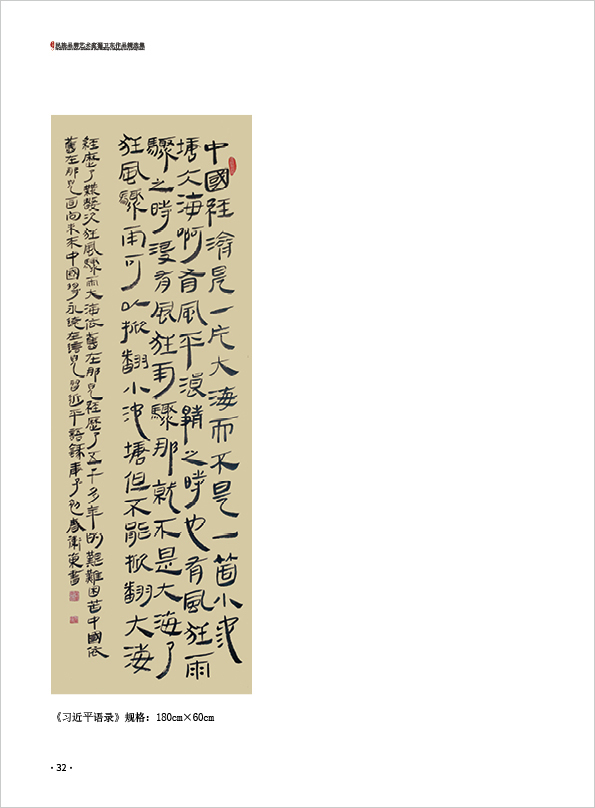 民族品牌艺术家卫东作品精选集
中國経濟是一片大海而不是一箇小池
塘大海啊有風平浪静之時也有風狂雨
驟之時沒有風狂雨驟那就不是大海了
狂風驟雨可以掀翻小池塘但不能掀翻大海
経歷了無數次狂風驟雨大海依舊在那兒経歷了五千多年的艱難困苦中國依
舊在那兒面向未来中國將永遠在這兒習近平語録春衛東書
《习近平语录》规格：180cm×60cm
· 32 ·